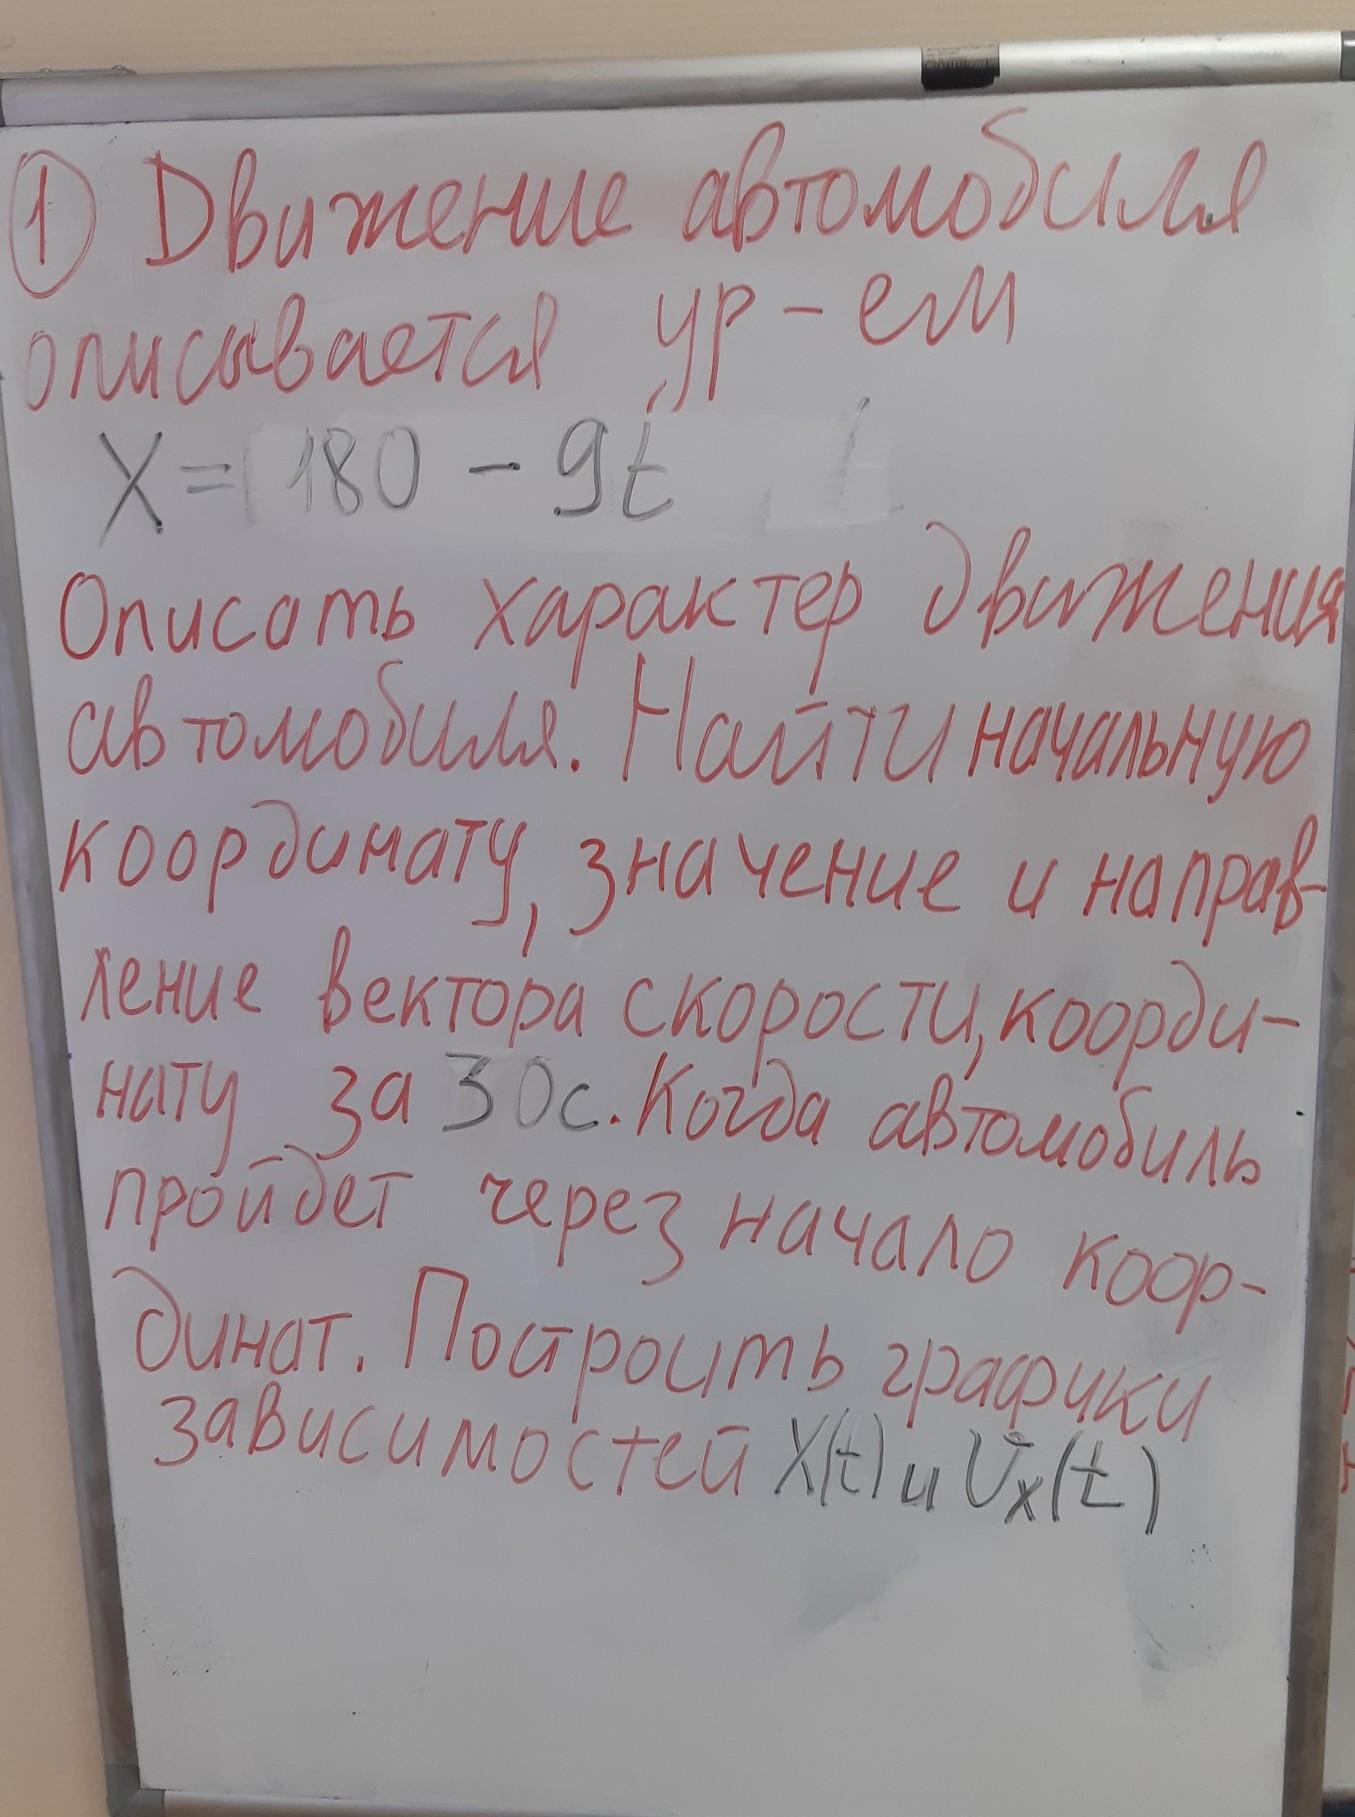 1 Движение автомобиля
описывается ур-ем
X = 180 - 9t
Описать характер движения
автомобиля. Найти начальную
координату, значение и направ-
ление вектора скорости, коорди-
нату за 30с. Когда автомобиль
пройдет через начало коор-
динат. Построить графики
зависимостей X(t) и Vx(t)